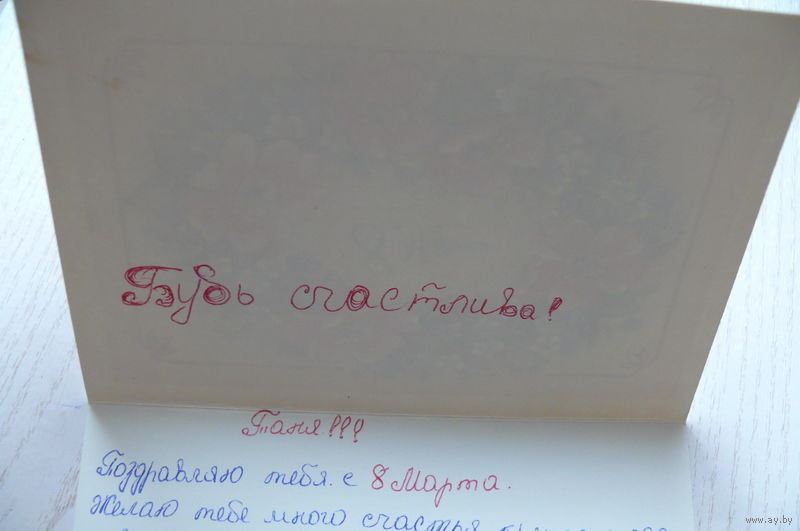 Будь счастлива!
Таня!!!
Поздравляю тебя. с 8 Марта.
Желаю тебе много счастья
www.ay.by